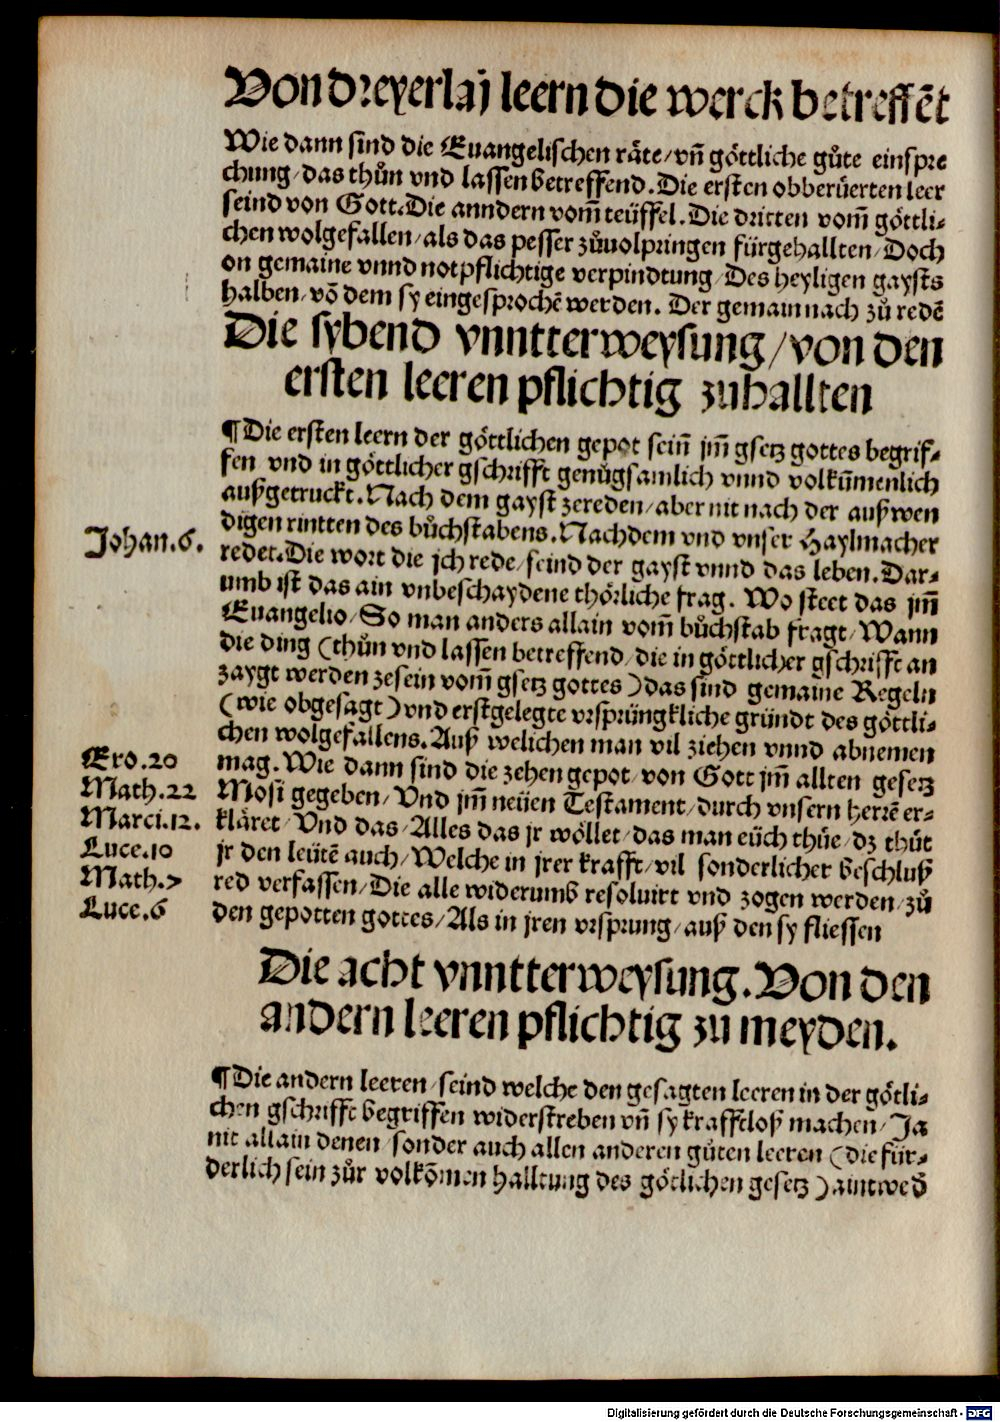 Von dreyerlaj leern die werck betreffēt
Wie dann sind die Euangelischen räte/vn̄ göttliche gůte einspre
chung/das thůn vnd lassen betreffend. Die ersten obberüerten leer
seind von Gott. Die anndern vom̄ teüffel. Die dritten vom̄ göttli⸗
chen wolgefallen/als das pesser zůuolpringen fürgehallten/Doch
on gemaine vnnd notpflichtige verpindtung/Des heyligen gaysts
halben/vō dem sy eingesprochē werden. Der gemain nach zů redē
Die sybend vnntterweysung/von den
ersten leeren pflichtig zuhallten
¶Die ersten leern der göttlichen gepot sein̄ jm̄ gsetz gottes begrif⸗
fen vnd in göttlicher gschrifft genůgsamlich vnnd volkūmenlich
außgetruckt. Nach dem gayst zereden/aber nit nach der außwen
digen rintten des bůchstabens. Nachdem vnd vnser Haylmacher
Johan.6.
redet. Die wort die jch rede/seind der gayst vnnd das leben. Dar⸗
umb ist das ain vnbeschaydene thörliche frag. Wo steet das jm̄
Euangelio/So man anders allain vom̄ bůchstab fragt/Wann
die ding (thůn vnd lassen betreffend/die in göttlicher gschrifft an
zaygt werden zesein vom̄ gsetz gottes) das sind gemaine Regeln
(wie obgesagt) vnd erstgelegte vrsprüngkliche gründt des göttli⸗
chen wolgefallens. Auß welichen man vil ziehen vnnd abnemen
mag. Wie dann sind die zehen gepot/von Gott jm̄ allten gesetz
Exo.20
Mosi gegeben/Vnd jm̄ neüen Testament/durch vnsern herrē er⸗
Math.22
kläret/Vnd das/Alles das jr wöllet/das man eüch thüe/dz thüt
Marci.12.
jr den leütē auch/Welche in jrer krafft/vil sonderlicher beschluß
Luce.10
red verfassen/Die alle widerumb resoluirt vnd zogen werden/zů
Math.7
den gepotten gottes/Als in jren vrsprung/auß den sy fliessen
Luce.6
Die acht vnntterweysung. Von den
andern leeren pflichtig zu meyden.
¶Die andern leeren/seind welche den gesagten leeren in der götli⸗
chen gschrifft begriffen widerstreben vn̄ sy krafftloß machen/Ja
nit allain denen/sonder auch allen anderen gůten leeren (die für⸗
derlich sein zůr volkōmen halltung des götlichen gesetz) aintwed̄
Digitalisierung gefördert durch die Deutsche Forschungsgemeinschaft - DFG